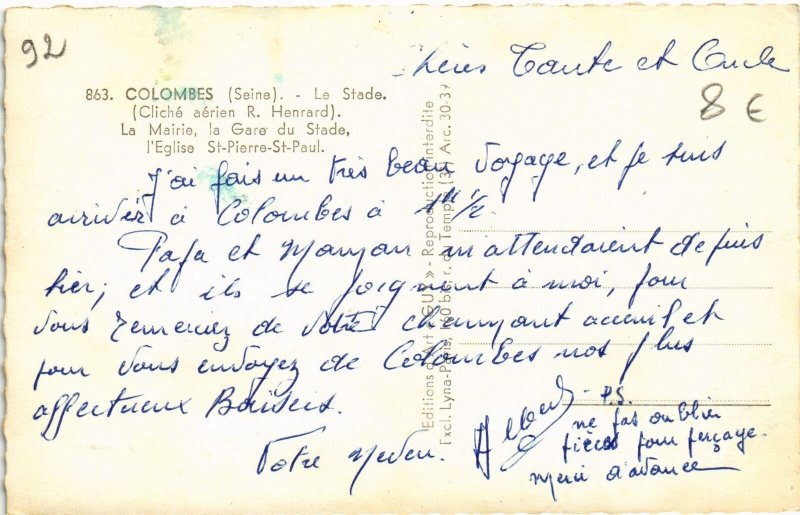 92
Chères Tante et Oncle
863. COLOMBES (Seine). - Le Stade.
(Cliché aérien R. Henrard).
La Mairie, la Gare du Stade,
l'Eglise St-Pierre-St-Paul.
8 €
J'ai fais un très beau voyage, et je suis
arrivér à Colombes à 1H 1/2.
Papa et Maman m'attendaient depuis
hier; et ils se joignent à moi, pour
vous remerciez de votre charmant accueil et
pour vous envoyez de Colombes nos plus
affectueux Baisers.
Votre neveu. Albert
- P.S.
ne pas oublier
pièces pour perçage.
merci d'avance
"Editions d'Art "GUY" - Reproduction interdite
Excl. Lyna-Paris, 160 bis r. du Temple (3e) Arc. 30-37